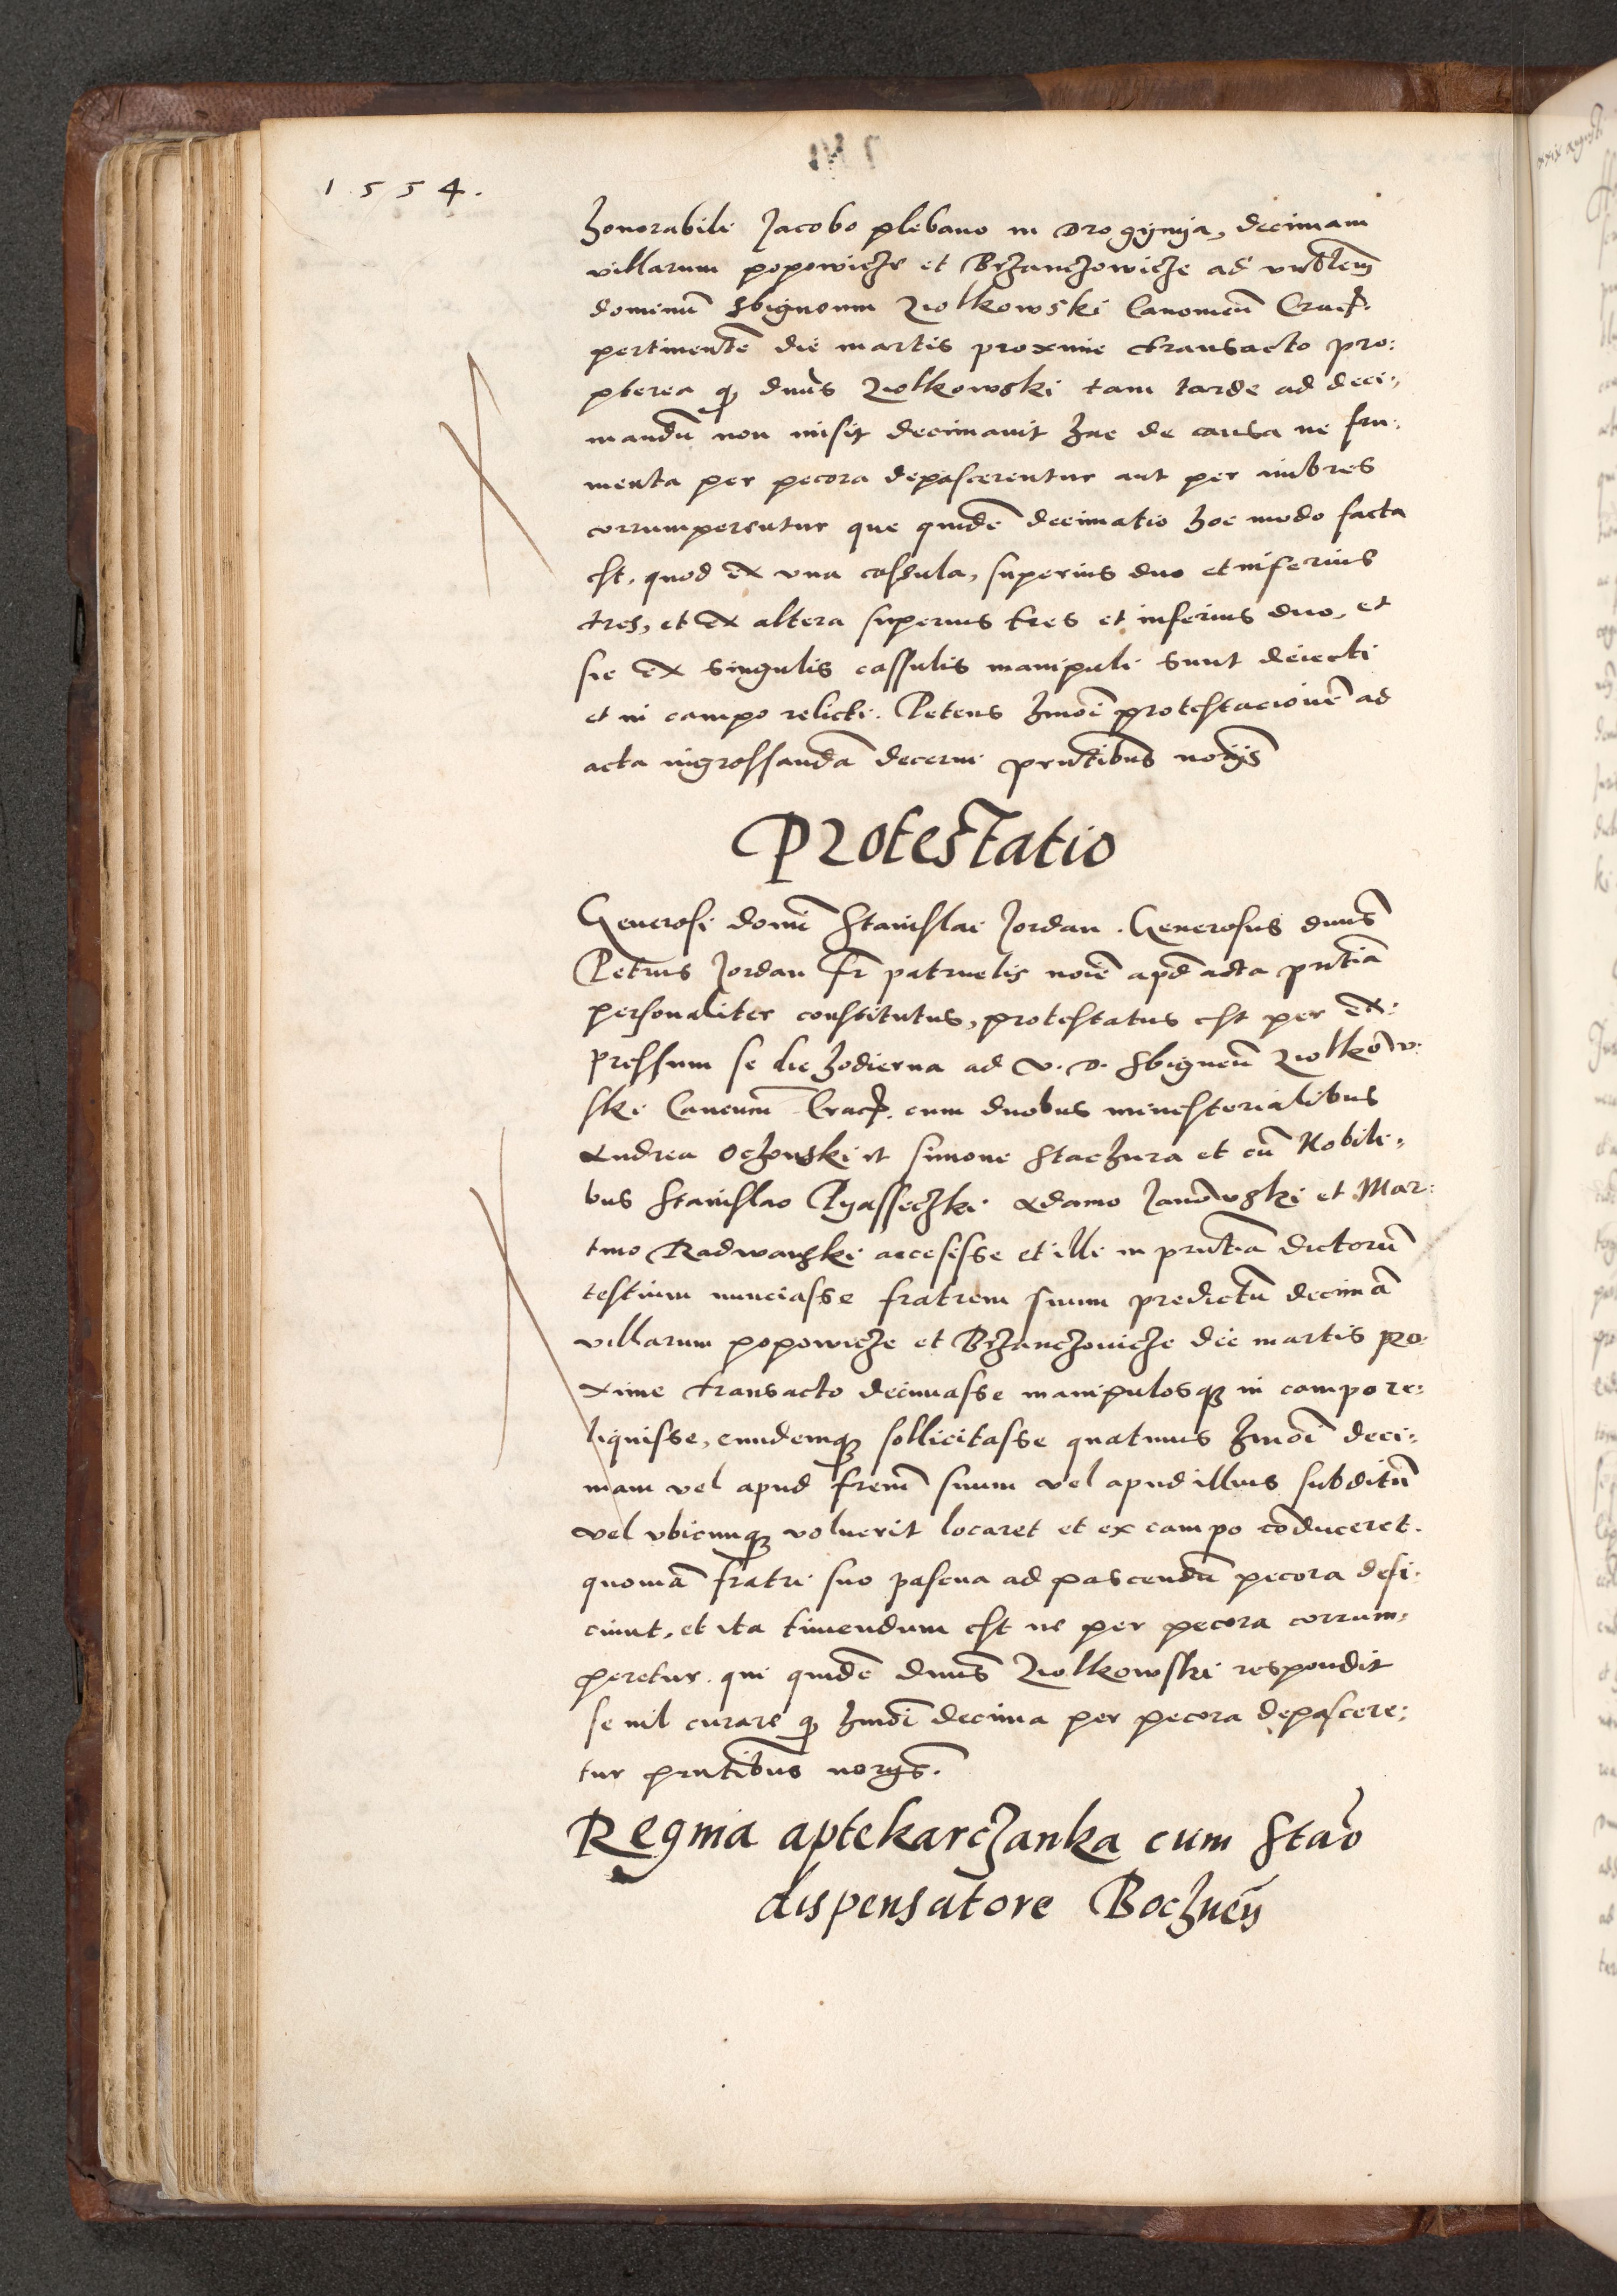 1554.
honorabili Jacobo plebano in Drogÿnÿa, decimam
villarum popowicze et Brzanczowicze ad vnrblem̃
dominũ Sbigneum Zolkowski Canonicũ Crac.
pertinentẽ die martis proxime transacto pro:
pterea qͫ dñus Zolkowski tam tarde ad deci:
mandũ non misit decimauit hac de causa ne fru:
menta per pecora depascerentur aut per imbres
corrumperentur que quidẽ decimatio hoc modo facta
est, quod ex vna cassula, superius duo et inferius
tres, et ex altera superius tres et inferius duo, et
sic ex singulis cassulis manipuli sunt deiecti
et in campo relicti. Petens hmõi protestacionẽ ad
acta ingrossandã decerni pñtibus
Protestatio
Generosi domi Stanislai Jordan. Generosus dñus
Petrus Jordan fr̃ patruelis noĩe apd̃ acta pñtia
personaliter constitutus, protestatus est per ex:
pressum se die hodierna ad V. D. Sbigneũ Zolkow:
ski Canonicũ Crac. cum duobus ministerialibus
Andrea Oczonski et Simone Stachura et cũ Nobili:
bus Stanislao Pyasseczki Adamo Janowski et Mar:
tino Radwanski accesisse et illi in pñtia dictorũ
testium nunciasse fratrem suum predictũ decimã
villarum popowicze et Brzanczouicze die martis pro:
xime transacto decimasse manipulosqꝫ in campo re:
liquisse, eundemqꝫ sollicitasse quatinus hmõi deci:
mam vel apud frem̃ suum vel apud illius subditũ
vel vbicunqꝫ voluerit locaret et ex campo cõduceret.
quoniã fratri suo pascua ad pascendũ pecora defi:
ciunt, et ita timendum est ne per pecora corrum:
peretur. qui quidẽ Dñus Zolkowski respondit
se nil curare qͫ hmõi decima per pecora depascere:
tur pñtibus
Regina aptekarczanka cum Stao
dispensatore Boczneñ